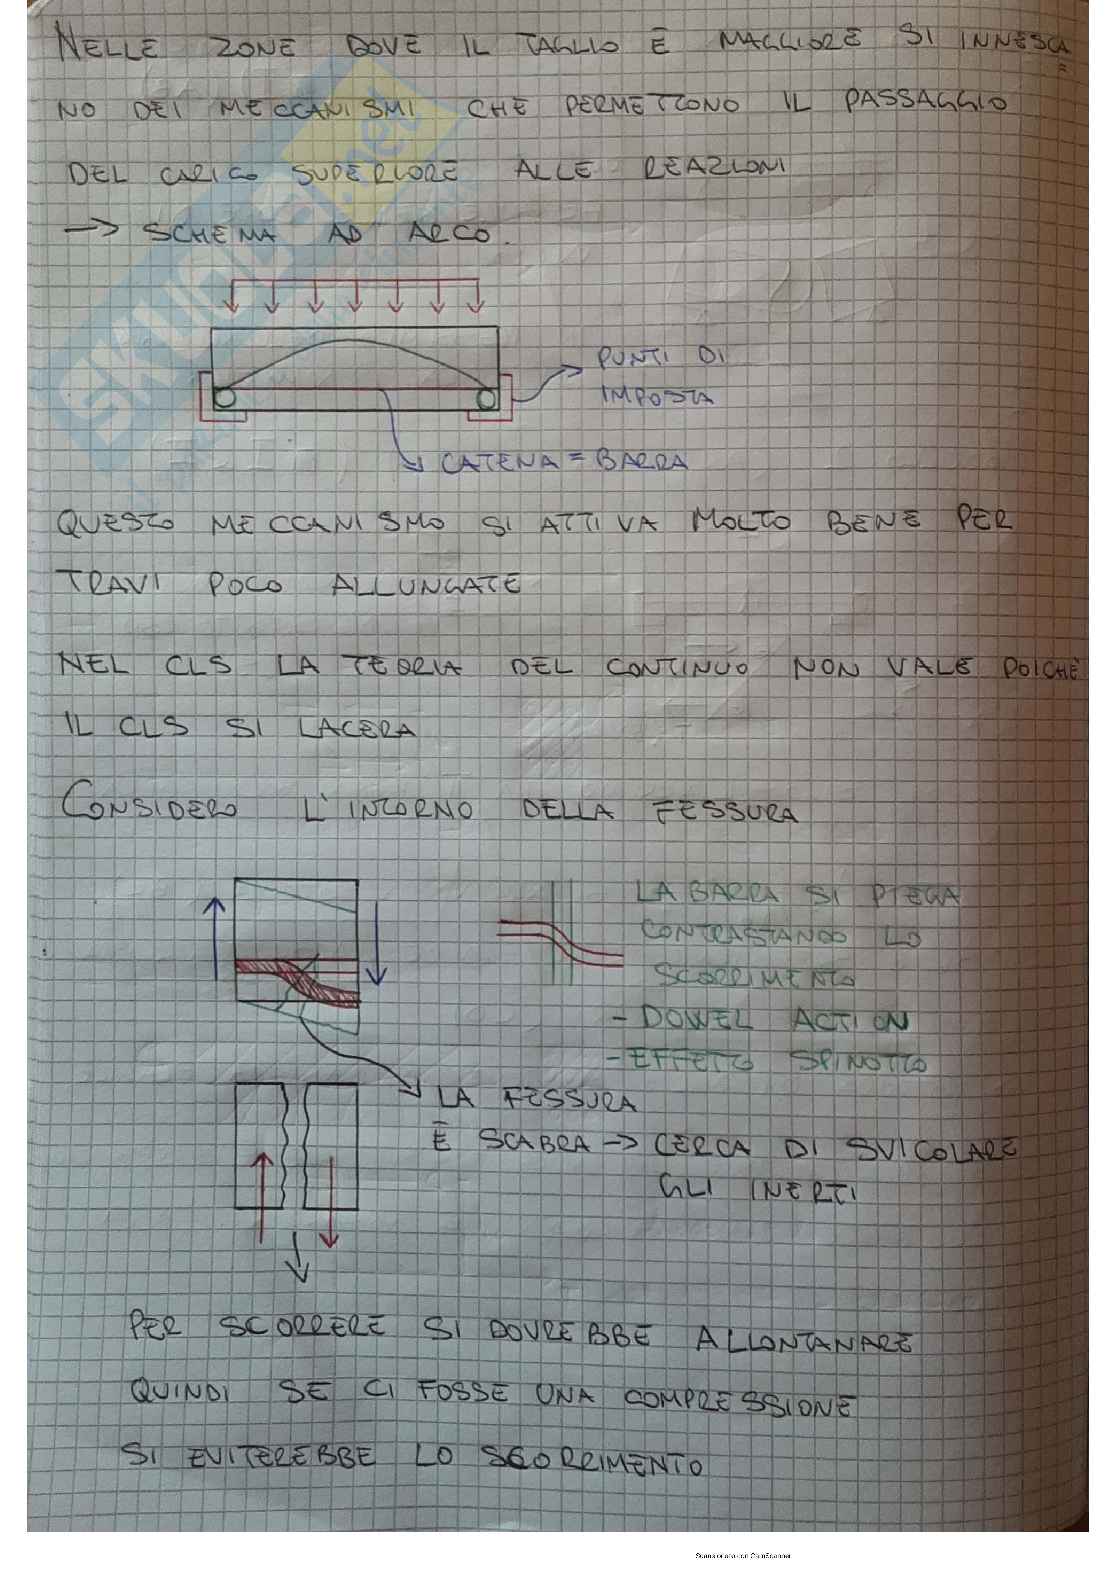 NELLE ZONE DOVE IL TAGLIO È MAGGIORE SI INNESCA
NO DEI MECCANISMI CHE PERMETTONO IL PASSAGGIO
DEL CARICO SUPERIORE ALLE REAZIONI
→ SCHEMA AD ARCO.
PUNTI DI
IMPOSTA
CATENA = BARRA
QUESTO MECCANISMO SI ATTIVA MOLTO BENE PER
TRAVI POCO ALLUNGATE
NEL CLS LA TEORIA DEL CONTINUO NON VALE POICHÈ
IL CLS SI LACERA
CONSIDERO L'INTORNO DELLA FESSURA
LA BARRA SI PIEGA
CONTRASTANDO LO
SCORRIMENTO
- DOWEL ACTION
- EFFETTO SPINOTTO
LA FESSURA
È SCABRA → CERCA DI SVICOLARE
GLI INERTI
PER SCORRERE SI DOVREBBE ALLONTANARE
QUINDI SE CI FOSSE UNA COMPRESSIONE
SI EVITEREBBE LO SCORRIMENTO
SKUOLA.net
Scansionato con CamScanner